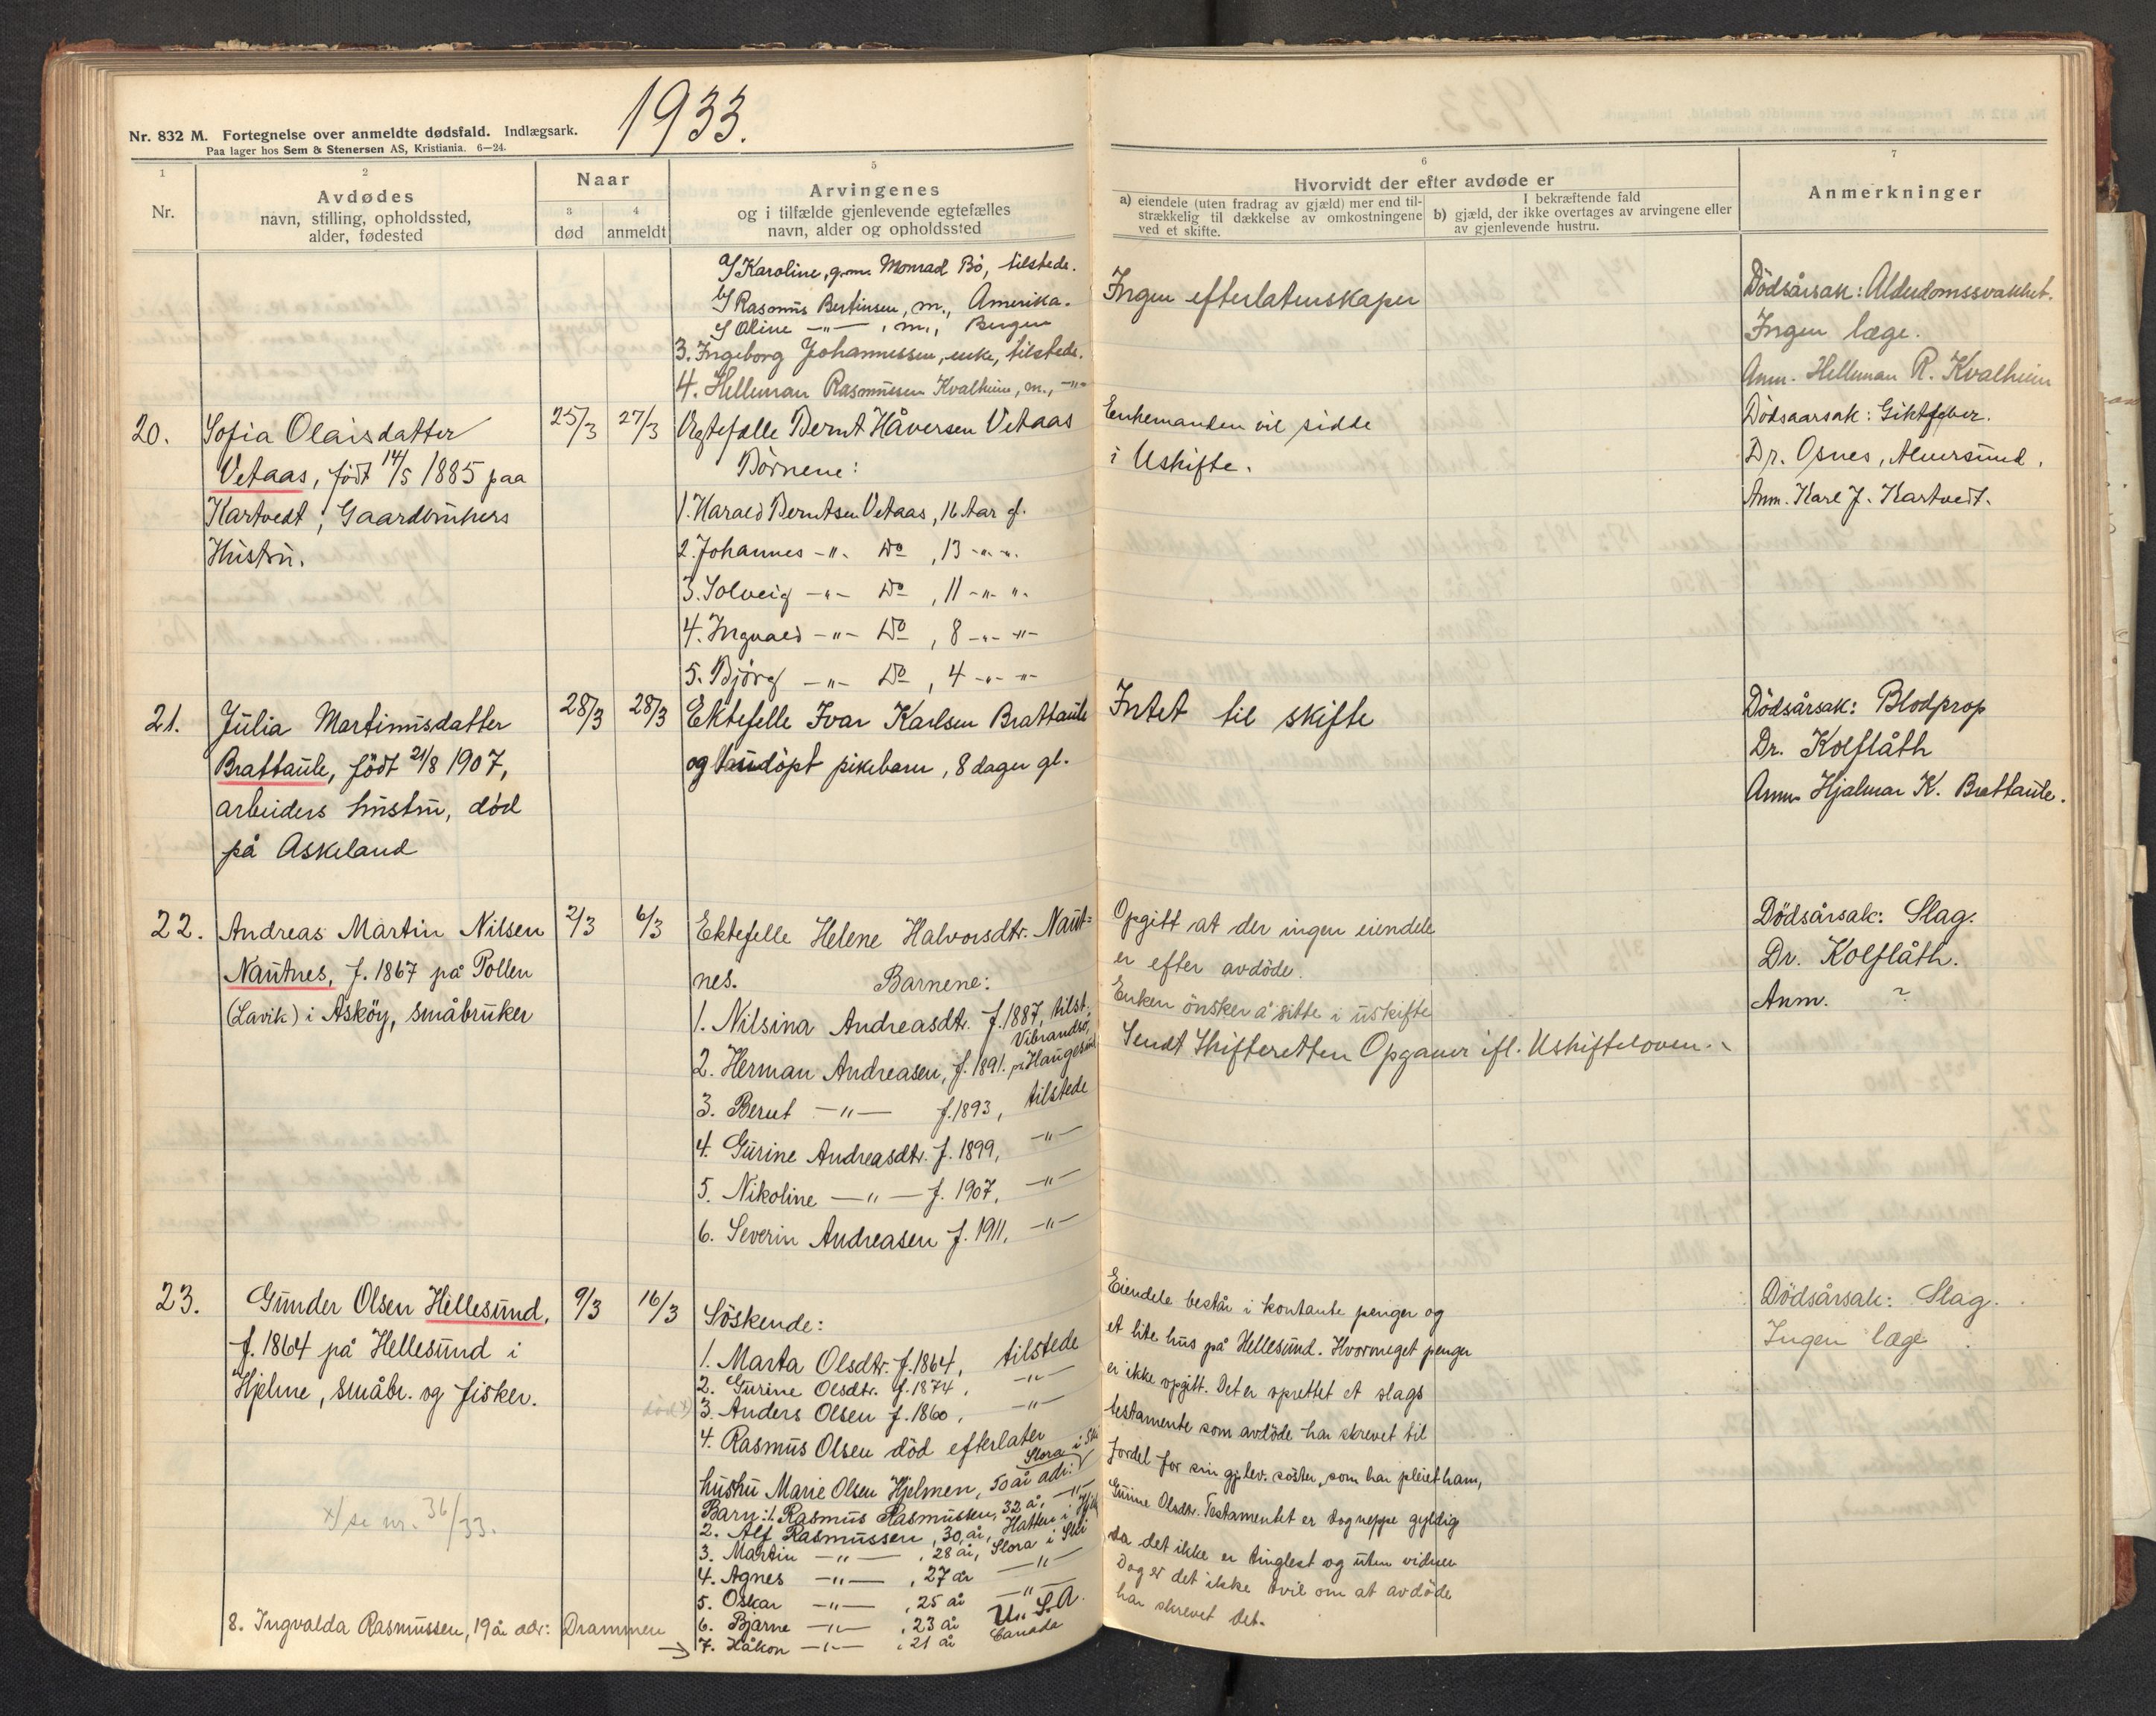 Nr. 832 M. Fortegnelse over anmeldte dødsfald. Indlægsark.
Paa lager hos Sem & Stenersen AS, Kristiania. 6—24.
1933.
1
Nr.
2
Avdødes
navn, stilling, opholdssted,
alder, fødested
Naar
3
død
4
anmeldt
5
Arvingenes
og i tilfælde gjenlevende egtefælles
navn, alder og opholdssted
6
Hvorvidt der efter avdøde er
a) eiendele (uten fradrag av gjæld) mer end til-
strækkelig til dækkelse av omkostningene
ved et skifte.
I bekræftende fald
b) gjæld, der ikke overtages av arvingene eller
av gjenlevende hustru.
7
Anmerkninger
a/ Karoline, g.m. Monrad Bö, tilstede.
b/ Rasmus Bertinsen, m., Amerika.
c/ Oline -"- , m., Bergen
3. Ingeborg Johannessen, enke, tilstede.
4. Helleman Rasmussen Kvalheim, m., -"-
Ingen efterlatenskaper
Dödsårsak: Alderdomssvakhet.
Ingen læge.
Anm. Helleman R. Kvalheim
20.
Sofia Olaisdatter
Vetaas, født 14/5 1885 paa
Kartvedt, Gaardbrukers
Hustru.
25/3
27/3
Ægtefælle Bernt Håversen Vetaas
Børnene:
1. Harald Berntsen Vetaas, 16 Aar gl.
2. Johannes -"- Do , 13 -"- "-
3. Solveig -"- Do , 11 -"- "-
4. Ingvald -"- Do , 8 -"- -"-
5. Björg -"- Do , 4 -"- -"-
Enkemanden vil sidde
i Uskifte.
Dödsaarsak: Giktfeber.
Dr. Osnes, Alversund.
Anm. Karl J. Kartvedt.
21.
Julia Martinusdatter
Brattaule, födt 21/8 1907,
arbeiders hustru, död
på Askeland
28/3
28/3
Ektefelle Ivar Karlsen Brattaule
og 1 udöpt pikebarn, 8 dager gl.
Intet til skifte
Dödsårsak: Blodprop
Dr. Kolflåth
Anm. Hjalmar K. Brattaule.
22.
Andreas Martin Nilsen
Nautnes, f. 1867 på Pollen
(Lavik) i Asköy, småbruker
2/3
6/3
Ektefelle Helene Halvorsdtr. Naut=
nes. Barnene:
1. Nilsina Andreasdtr. f. 1887, tilst.
Vibrandsö,
2. Herman Andreasen, f. 1891. pr. Haugesund
3. Bernt -"- f. 1893, tilstede
4. Gurine Andreasdtr. f. 1899, -"-
5. Nikoline -"- f. 1907, -"-
6. Severin Andreasen f. 1911, -"-
Opgitt at der ingen eiendele
er efter avdöde.
Enken önsker å sitte i uskifte
Sendt Skifteretten Opgaver ifl. Uskifteloven.
Dödsårsak: Slag.
Dr. Kolflåth.
Anm. ?
23.
Gunder Olsen Hellesund,
f. 1864 på Hellesund i
Hjelme, småbr. og fisker.
x/ se nr. 36/33.
9/3
16/3
Söskende:
1. Marta Olsdtr. f. 1864, tilstede
2. Gurine Olsdtr. f. 1874, -"-
död x) 3. Anders Olsen f. 1860, -"-
4. Rasmus Olsen död efterlater
hustru Marie Olsen Hjelmen, 50 år adr: Slora i
Barn: 1. Rasmus Rasmussen, 32 å, -"-
2. Alf Rasmussen, 30 år, Hatten i
3. Martin -"- , 28 år, Slora i
4. Agnes -"- , 27 år -"-
5. Oskar -"- , 25 år -"-
6. Bjarne -"- , 23 år U.S.A.
7. Håkon -"- , 21 år Canada
8. Ingvalda Rasmussen, 19 år adr: Drammen
Eiendele består i kontante penger og
et lite hus på Hellesund. Hvormeget penger
er ikke opgitt. Det er oprettet et slags
testamente som avdöde har skrevet til
fordel for sin gjlev. söster, som har pleiet ham,
Gurine Olsdtr. Testamentet er dog neppe gyldig
da det ikke er tinglest og uten vidner
Dog er det ikke tvil om at avdöde
har skrevet det.
Dödsårsak: Slag.
Ingen læge